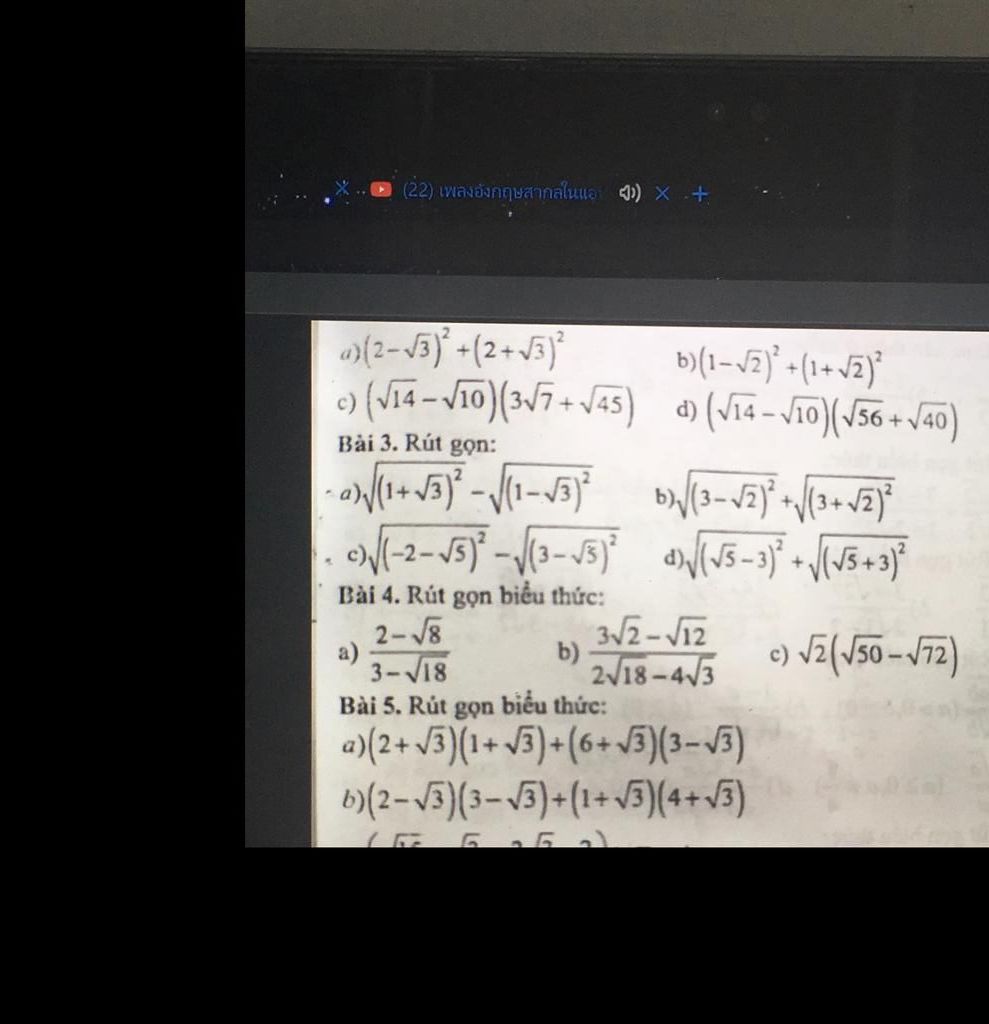 (22) เพลงอังกฤษสากลในแอ
a) (2-√3)² + (2+√3)² b) (1-√2)² + (1+√2)²
c) (√14-√10)(3√7+√45) d) (√14-√10)(√56+√40)
Bài 3. Rút gọn:
a) √((1+√3)²) - √((1-√3)²) b) √((3-√2)²) + √((3+√2)²)
c) √((-2-√5)²) - √((3-√5)²) d) √((√5-3)²) + √((√5+3)²)
Bài 4. Rút gọn biểu thức:
a) (2-√8)/(3-√18) b) (3√2-√12)/(2√18-4√3) c) √2(√50-√72)
Bài 5. Rút gọn biểu thức:
a) (2+√3)(1+√3)+(6+√3)(3-√3)
b) (2-√3)(3-√3)+(1+√3)(4+√3)